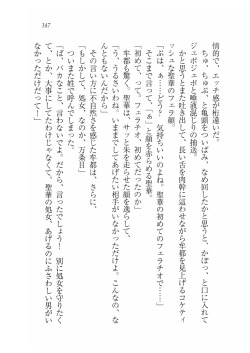 147
情的で、エッチ感が桁違いだ。
ちゅ、ちゅぷ、と亀頭をついばみ、なめ回したかと思うと、かぽっ、と口に入れて
ジュポジュポと唾液混じりの抽送。
かと思うとまた吐き出して、長い舌を肉幹に這わせながら牟都を見上げるコケティ
ッシュな聖華のフェラ顔。
「ぷは、ぁ……どう？　気持ちいいのよね。聖華の初めてのフェラチオで……」
そこまで言って、「ぁ」と顔を赤らめる聖華。
「初めて、って、フェラチオ、初めてだったのか」
牟都が驚く。聖華は、サッと朱を走らせた顔を逸らして、
「う、うるさいわね。いままでしてあげたい相手がいなかっただけよ。こんなの、な
んともないんだから」
その言い方に不自然さを感じた牟都は、さらに、
「もしかして、処女、なのか、万条目」
ついまた姓で呼んでしまった。
「ば、バカなこと、言わないでよ。だから、言ったでしょう！　別に処女を守りたく
て、とか、大事にしてたわけじゃなくて。聖華の処女、あげるのにふさわしい男がい
なかっただけだって！」